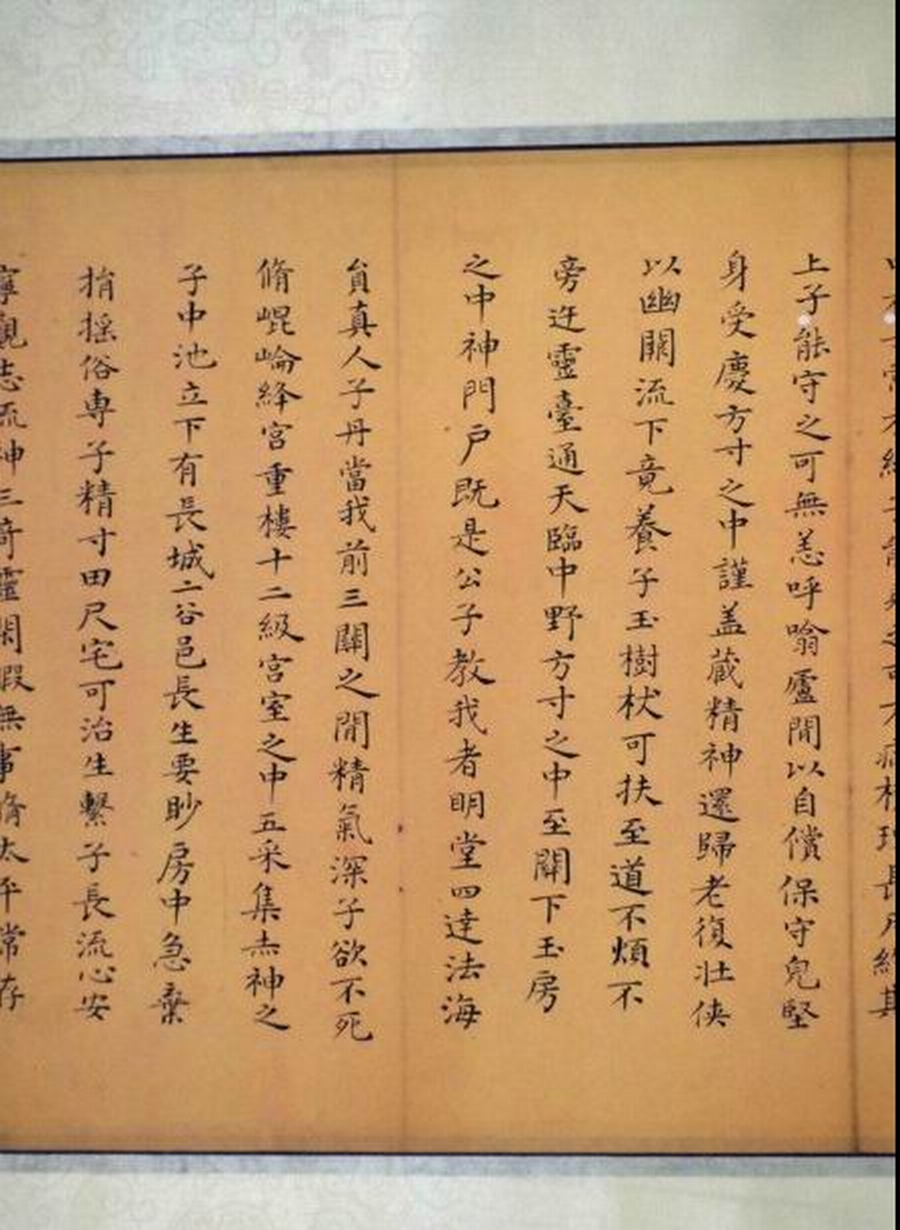 上子能守之可無恙呼噏廬間以自償保守皃堅
身受慶方寸之中謹盖蔵精神還歸老復壯俠
以幽闕流下竟養子玉樹杖可扶至道不煩不
旁迕靈臺通天臨中野方寸之中至闕下玉房
之中神門戶既是公子教我者明堂四達法海
貟真人子丹當我前三關之間精氣深子欲不死
脩崐崘絳宮重樓十二級宮室之中五采集赤神之
子中池立下有長城二谷邑長生要眇房中急棄
捐搖俗専子精寸田尺宅可治生繫子長流心安
寧觀志流神三奇靈閑暇無事脩太平常存